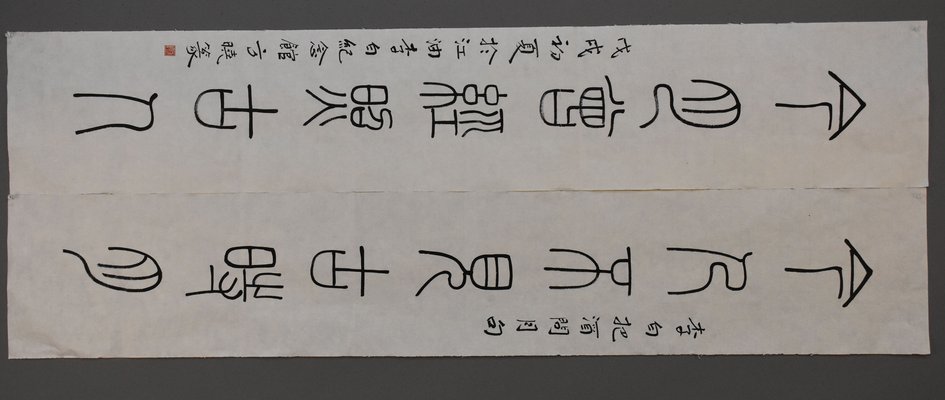 李白把酒問月句
今人不見古時月
今月曾經照古人
戊戌初夏於江油李白紀念館方曉